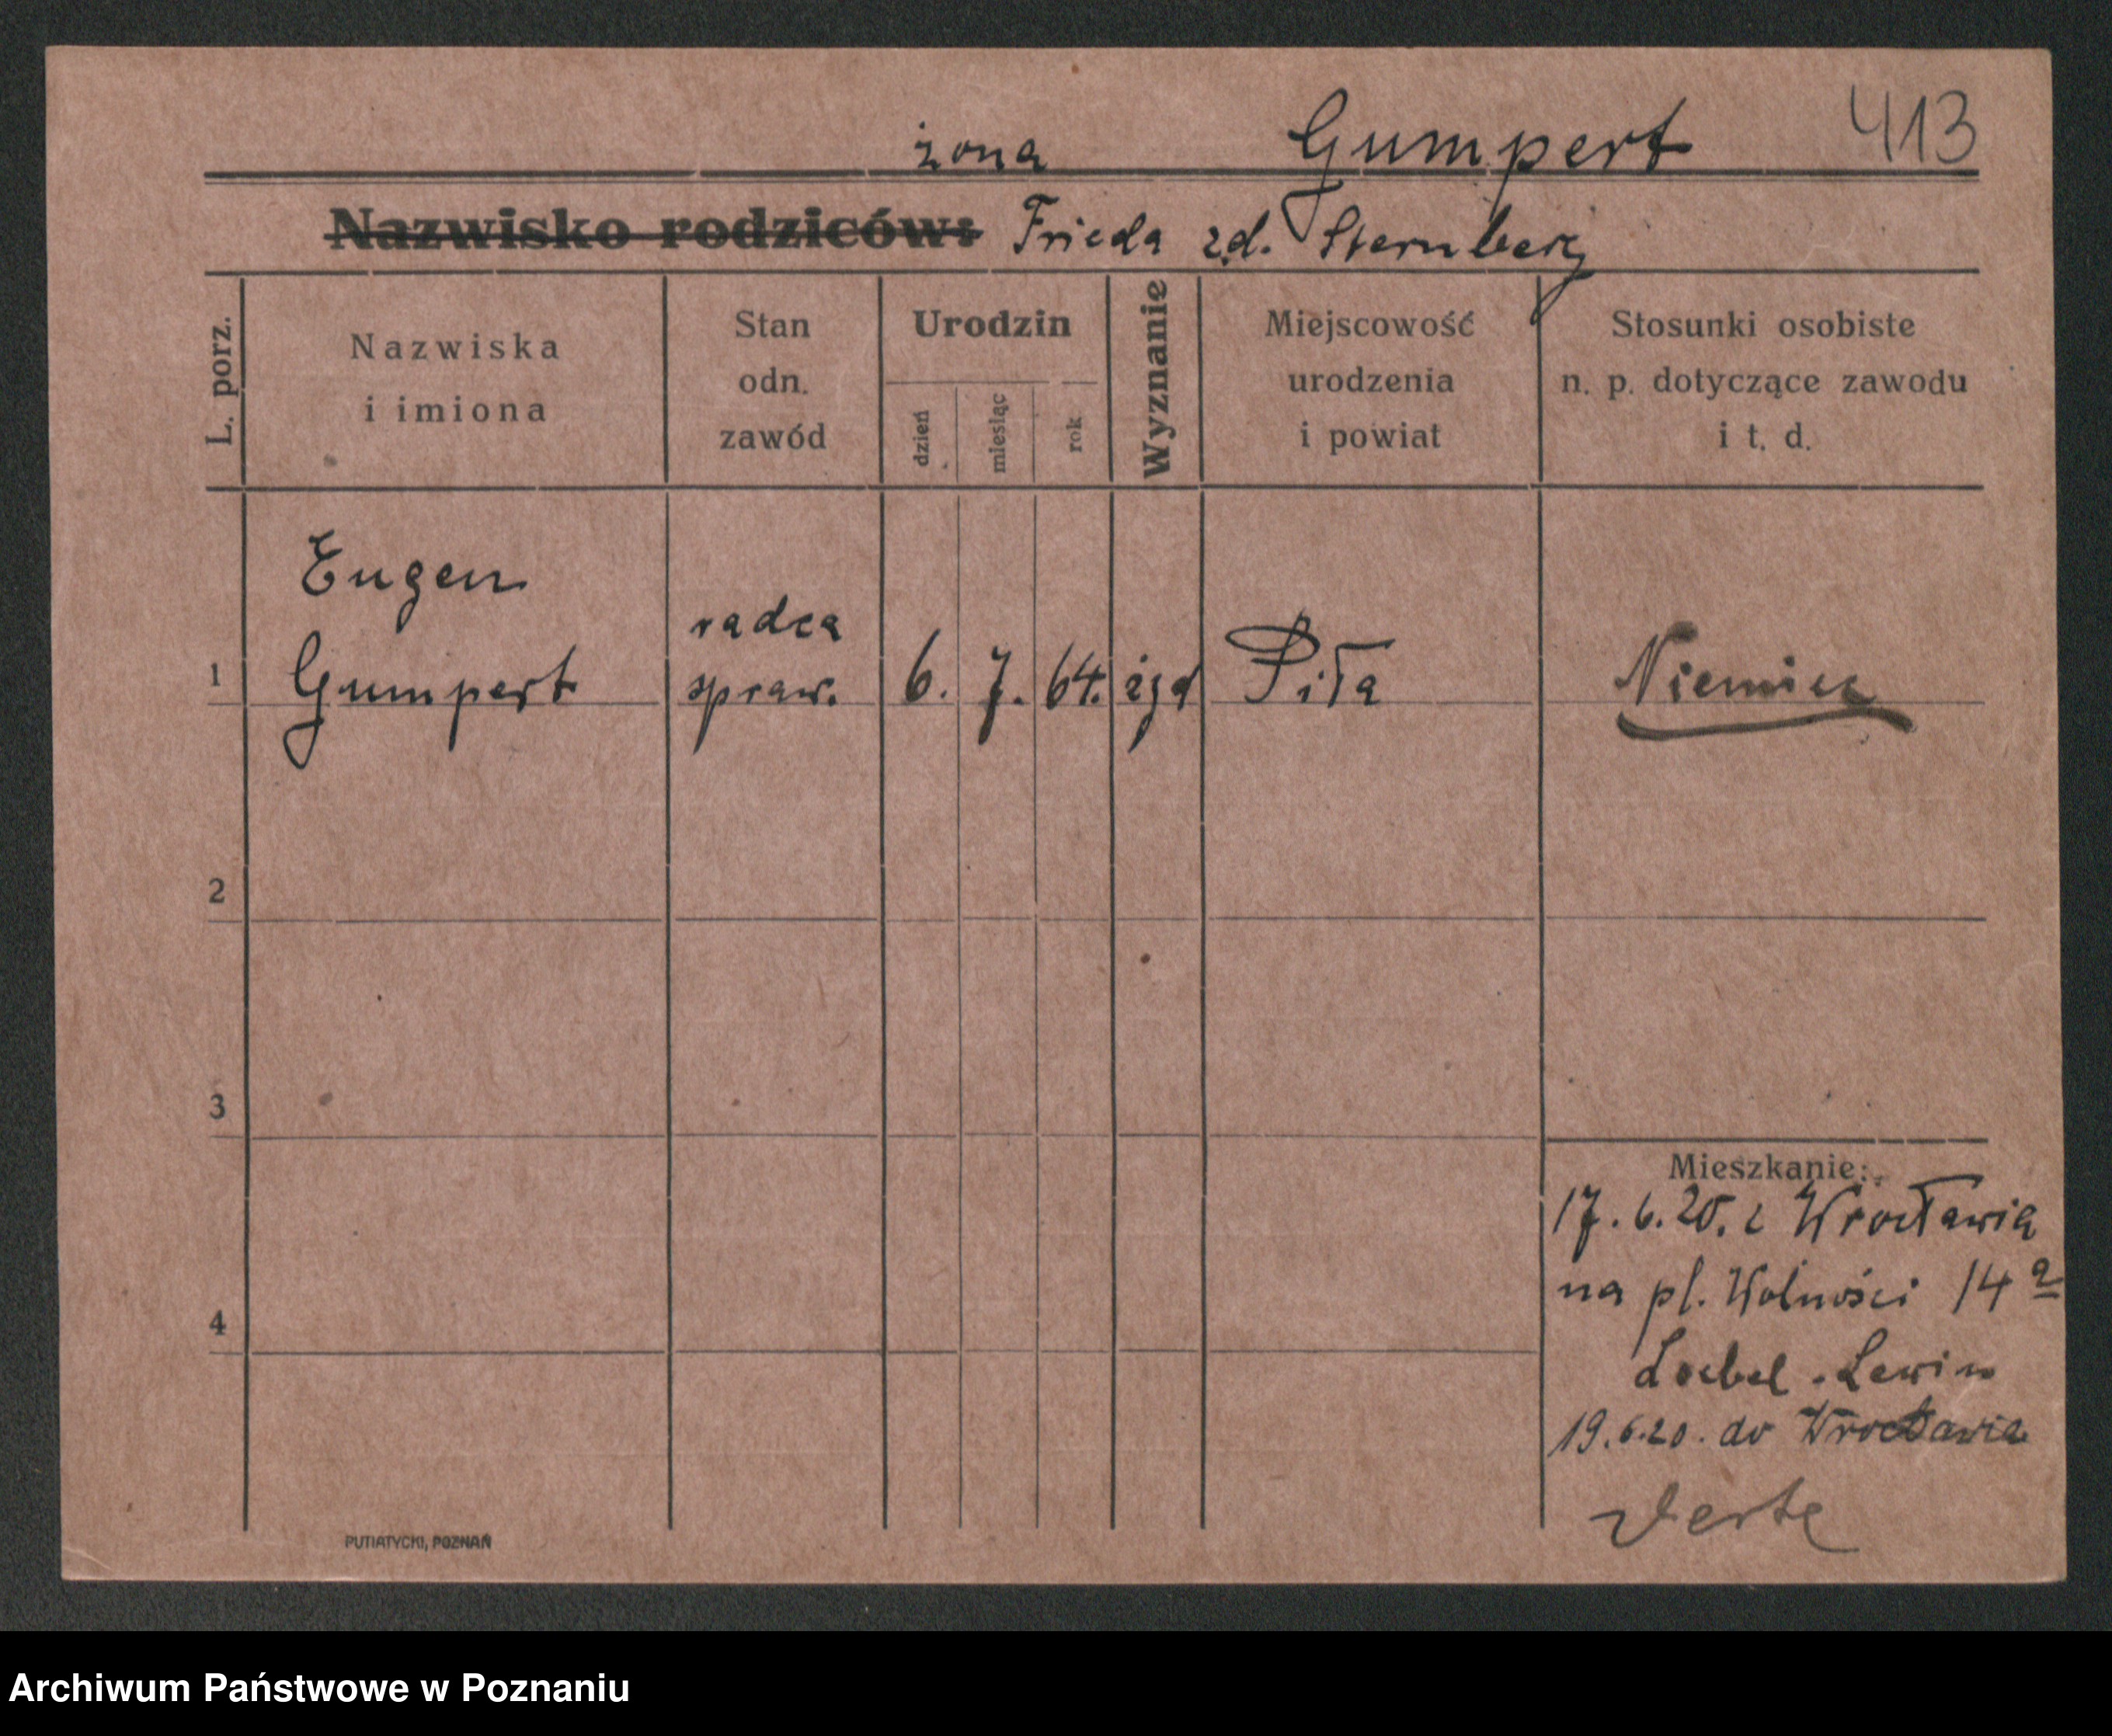 żona Gumpert 413
Nazwisko rodziców: Frieda zd. Sternberg
L. porz.
Nazwiska
i imiona
Stan
odn.
zawód
Urodzin
dzień
miesiąc
rok
Wyznanie
Miejscowość
urodzenia
i powiat
Stosunki osobiste
n. p. dotyczące zawodu
i t. d.
Eugen
radca
1 Gumpert spraw. 6. 7. 64. żyd Piła Niemiec
2
3
Mieszkanie:
17.6.20. z Wrocławia
na pl. Wolności 14a
4
Loebel. Lewin
19.6.20. do Wrocławia
Verte
PUTIATYCKI, POZNAŃ
Archiwum Państwowe w Poznaniu